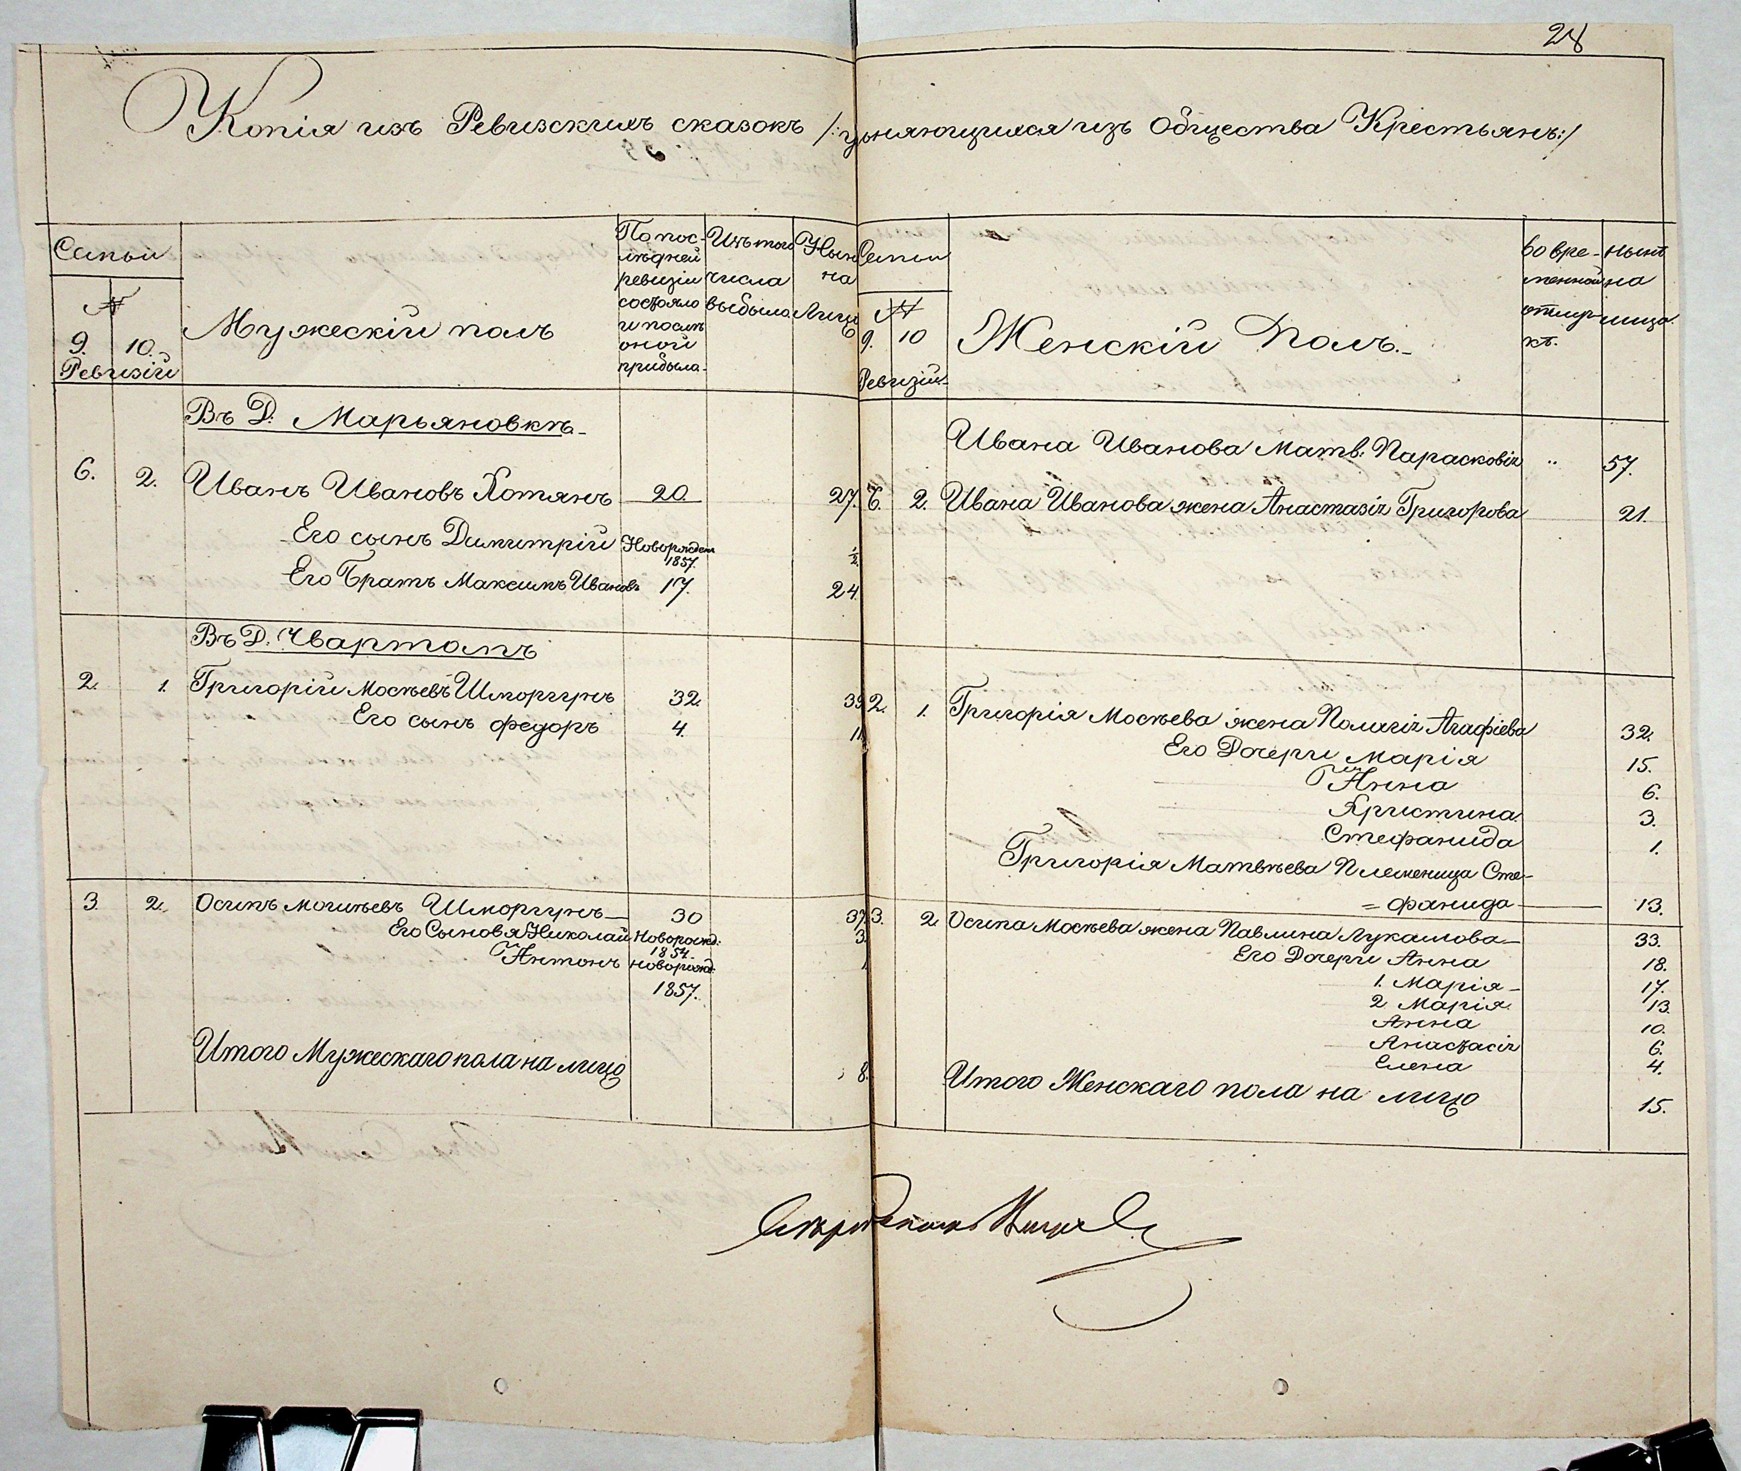 28
Копія изъ Ревизскихъ сказокъ /: увольняющихся изъ Общества Крестьянъ :/
Семьи
№
9. 10.
Ревизій
Мужескій полъ
По пос-
лѣдней
ревизіи
состояло
и послѣ
оной
прибыло.
Изъ того
числа
выбыло.
Нынѣ
на
Лицо
Въ Д. Марьяновкѣ
6. 2. Иванъ Ивановъ Хотянъ 20 27.
Его сынъ Димитрій Новорожден 1857. ½
Его Братъ Максимъ Ивановъ 17. 24.
Въ Д. Чвартомъ
2. 1. Григорій Мосѣевъ Шморгунъ 32. 39
Его сынъ Федоръ 4. 11.
3. 2. Осипъ Мосѣевъ Шморгунъ 30 37.
Его Сыновья Николай Новорожд: 1854. 3.
Антонъ новорожд. 1
1857.
Итого Мужескаго пола на лицо 8.
Семьи
№
9. 10
Ревизій
Женскій Полъ.
Во вре-
менной
отлуч-
кѣ.
нынѣ
на
лицо.
Ивана Иванова Матв: Парасковія " 57.
6. 2. Ивана Иванова жена Анастазія Григорова 21.
2. 1. Григорія Мосѣева жена Полагія Агафіева 32.
Его Дочери Марія 15.
Анна 6.
Христина 3.
Стефанида 1.
Григорія Матвѣева Племеница Сте-
= фанида 13.
3. 2. Осипа Мосѣева жена Павлина Лукашова 33.
Его Дочери Анна 18.
1. Марія 17.
2 Марія 13.
Анна 10.
Анастасія 6.
Елена 4.
Итого Женскаго пола на лицо 15.